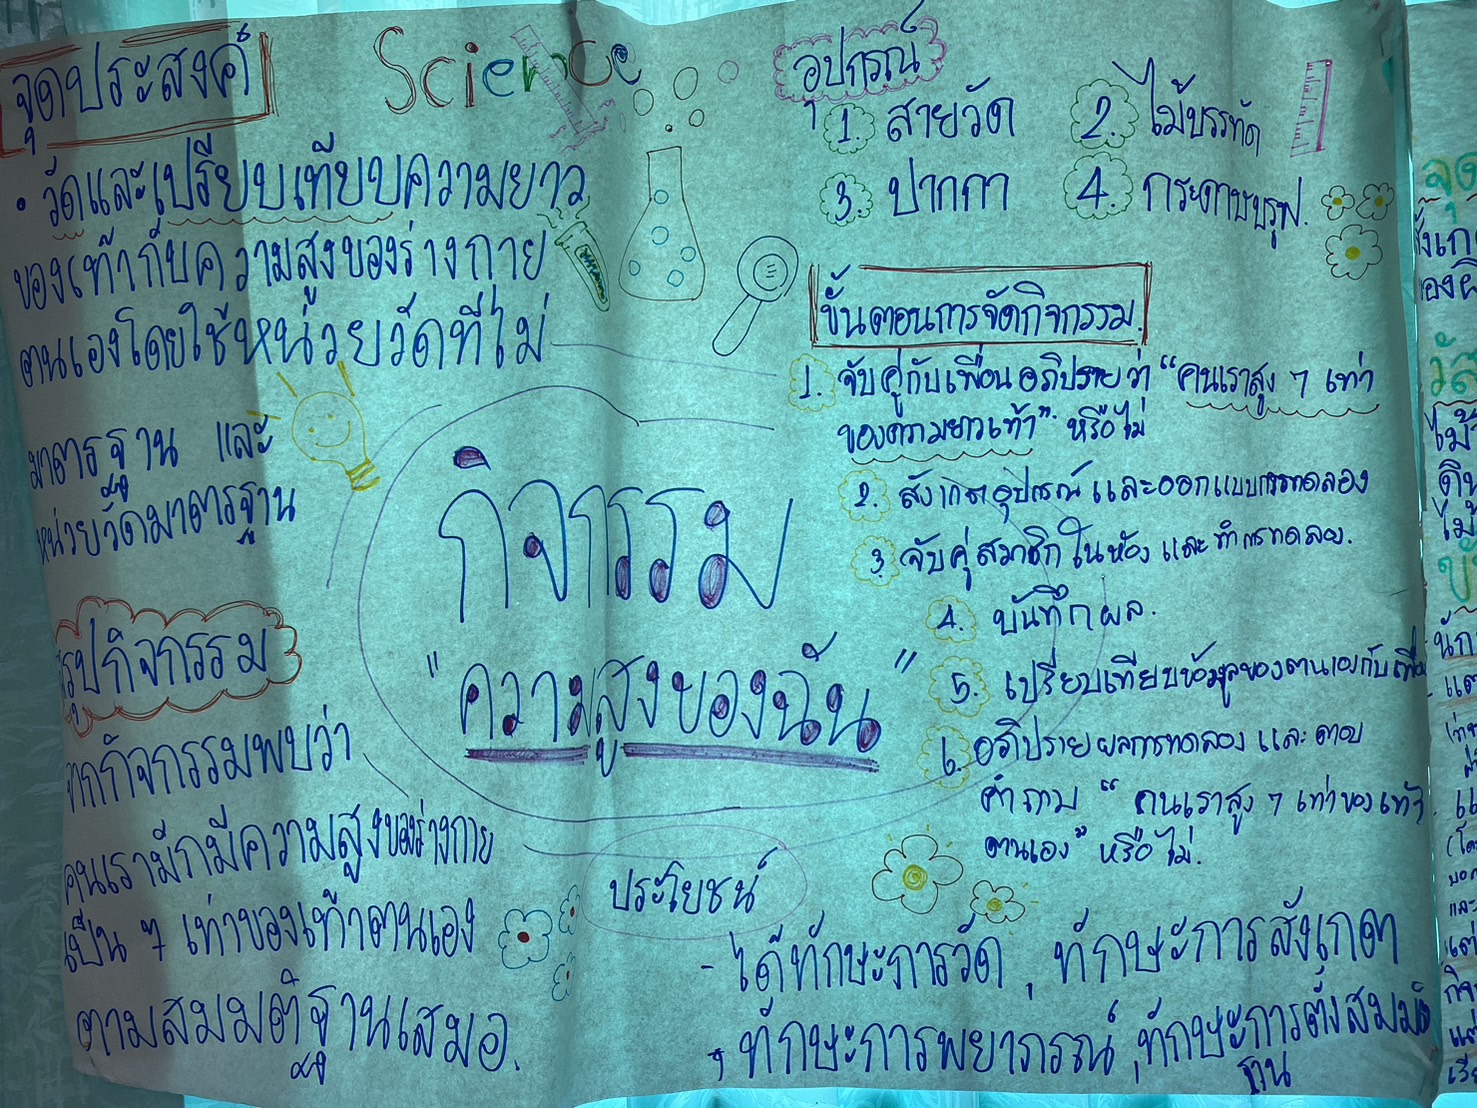 Science
จุดประสงค์
• วัดและเปรียบเทียบความยาว
ของเท้ากับความสูงของร่างกาย
ตนเองโดยใช้หน่วยวัดที่ไม่
มาตรฐาน และ
หน่วยวัดมาตรฐาน
อุปกรณ์
1. สายวัด 2. ไม้บรรทัด
3. ปากกา 4. กระดาษบรุฟ.
ขั้นตอนการจัดกิจกรรม.
1. จับคู่กับเพื่อนอภิปรายว่า "คนเราสูง 7 เท่า
ของความยาวเท้า" หรือไม่
2. สังเกตอุปกรณ์และออกแบบการทดลอง
3. จับคู่สมาชิกในห้อง และทำการทดลอง.
4. บันทึกผล.
5. เปรียบเทียบข้อมูลของตนเองกับเพื่อน
6. อภิปรายผลการทดลอง และ ตอบ
คำถาม " คนเราสูง 7 เท่าของเท้า
ตนเอง" หรือไม่.
กิจกรรม
"ความสูงของฉัน"
สรุปกิจกรรม
จากกิจกรรมพบว่า
คนเรามักมีความสูงของร่างกาย
เป็น 7 เท่าของเท้าตนเอง
ตามสมมติฐานเสมอ.
ประโยชน์
- ได้ทักษะการวัด, ทักษะการสังเกต
, ทักษะการพยากรณ์, ทักษะการตั้งสมมติ
ฐาน